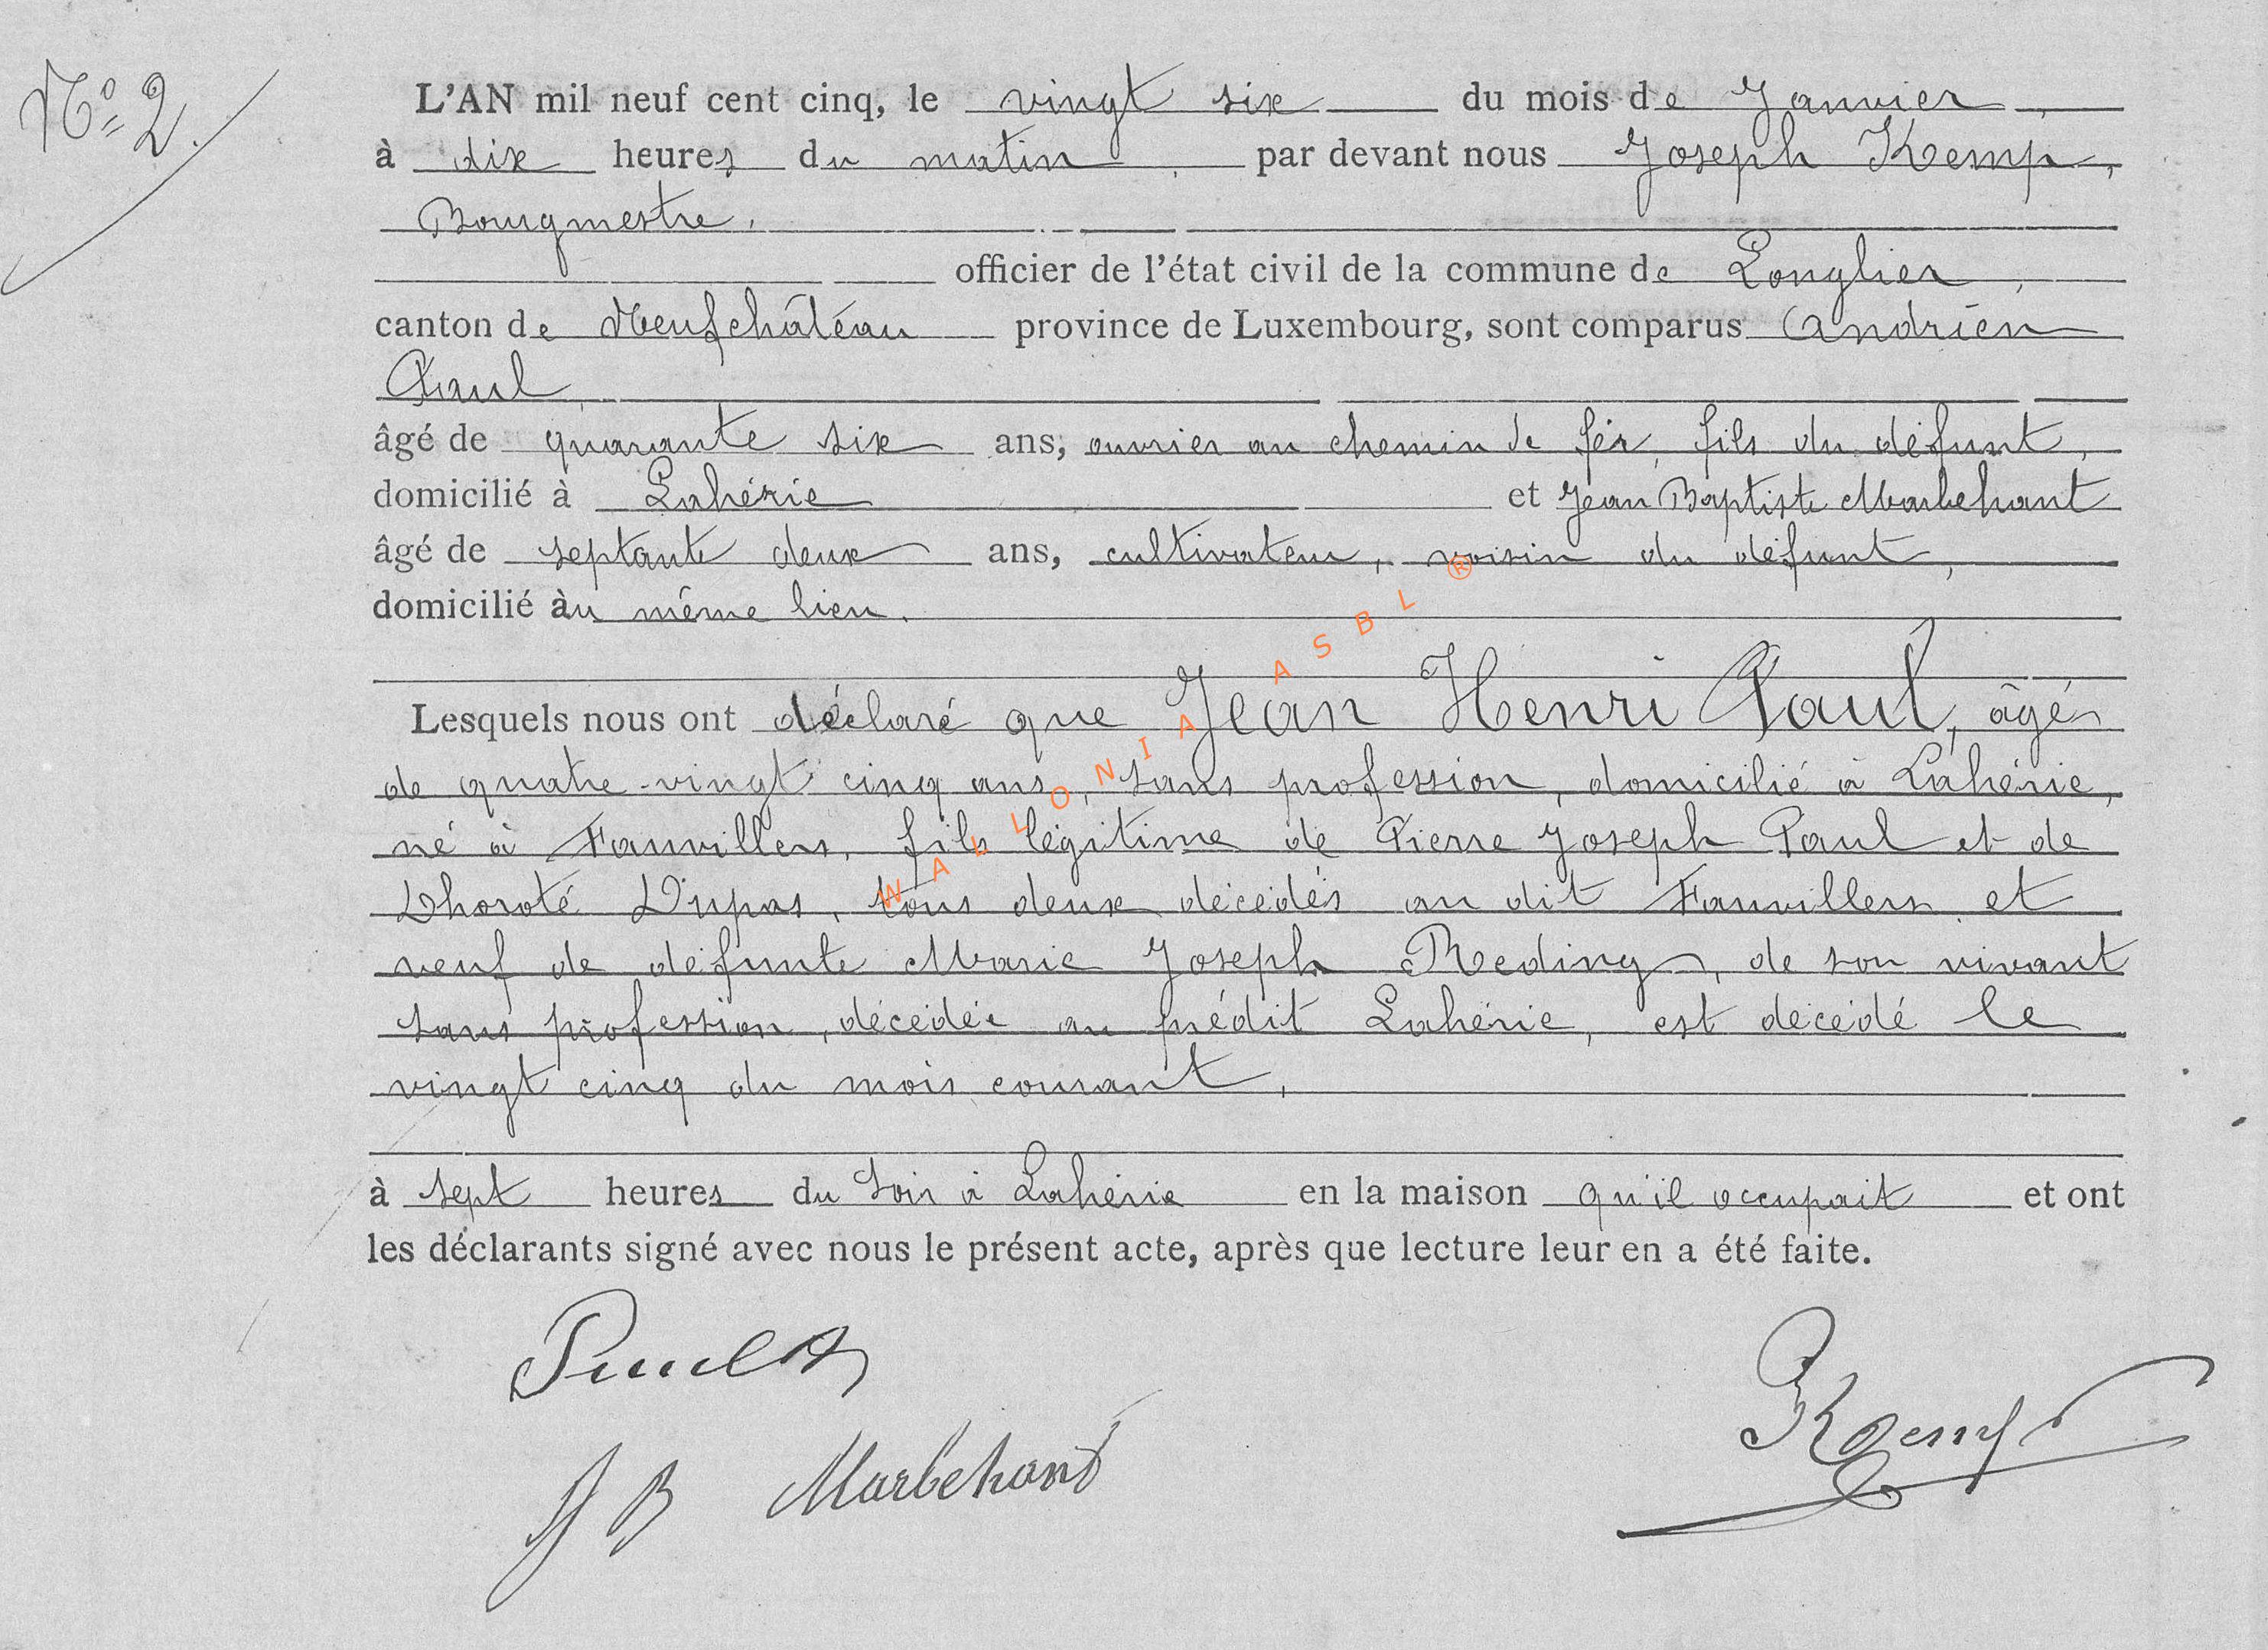 N° 2.
L'AN mil neuf cent cinq, le vingt six du mois de Janvier,
à dix heures du matin, par devant nous Joseph Kemp,
Bourgmestre.
officier de l'état civil de la commune de Longlier,
canton de Neufchâteau province de Luxembourg, sont comparus Andrien
Paul,
âgé de quarante six ans, ouvrier au chemin de fer, fils du défunt,
domicilié à Lahérie et Jean Baptiste Marbehant
âgé de septante deux ans, cultivateur, voisin du défunt,
domicilié au même lieu.
Lesquels nous ont déclaré que Jean Henri Paul, âgé
de quatre-vingt cinq ans, sans profession, domicilié à Lahérie,
né à Fauvillers, fils légitime de Pierre Joseph Paul et de
Dhoroté Dupas, tous deux décédés au dit Fauvillers et
veuf de défunte Marie Joseph Reding, de son vivant
sans profession, décédée au prédit Lahérie, est décédé le
vingt cinq du mois courant,
à sept heures du soir à Lahérie en la maison qu'il occupait et ont
les déclarants signé avec nous le présent acte, après que lecture leur en a été faite.
Paul A
J B Marbehant
Kemp
WALLONIA ASBL ®